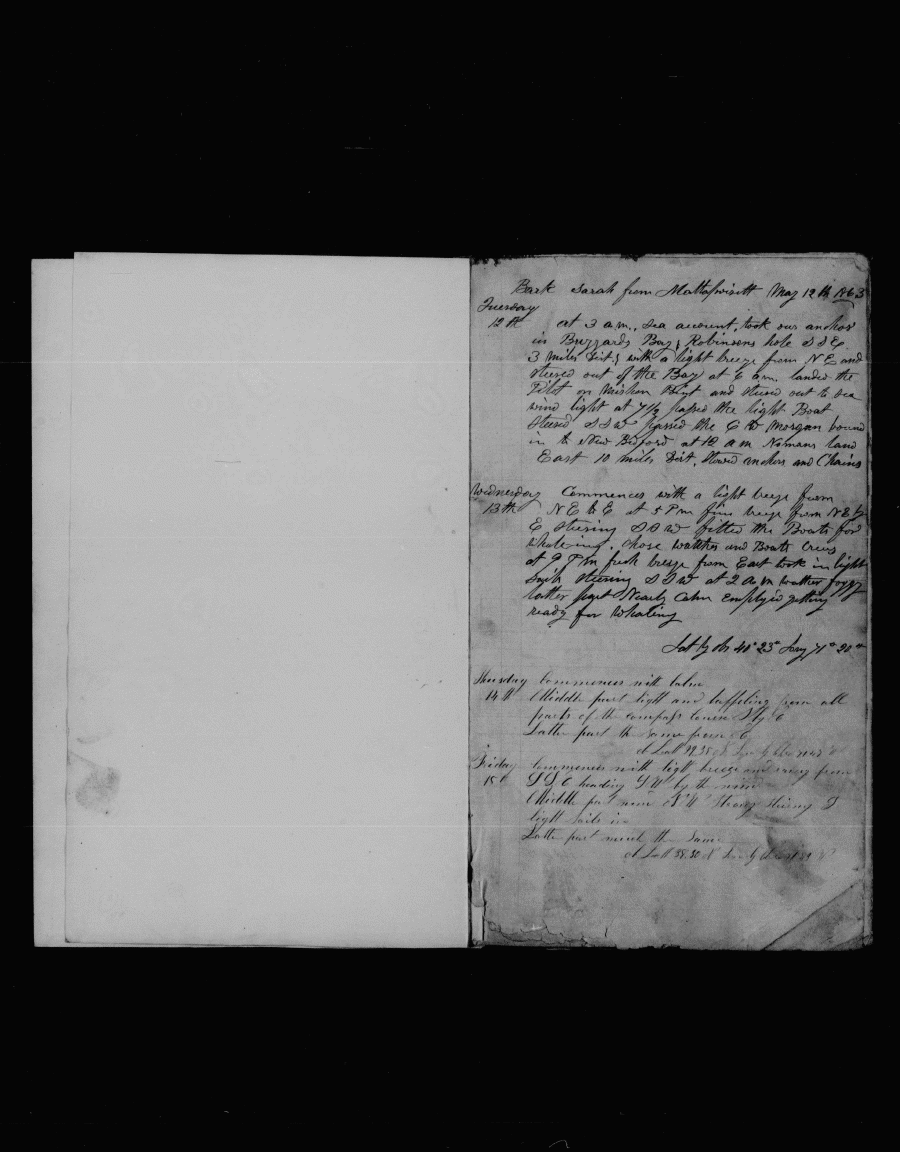 Bark Sarah from Mattapoisett May 12th 1863
Tuesday
12th at 3 a.m., Sea account, took our anchor
in Buzzards Bay; Robinsons hole S S E.
3 miles Dist.; with a light breeze from N E and
steered out of the Bay at 6 a.m. landed the
Pilot on Point and steered out to sea
wind light at 7 1/2 passed the light Boat
steered S S W passed the C W Morgan bound
in to New Bedford at 12 a m Nomans land
East 10 miles Dist, stowed anchors and Chains
Wednesday Commences with a light breeze from
13th N E b E at 5 P m fine breeze from N E by
E steering S S W fitted the Boats for
whaleing, chose watches and Boats crews
at 9 P m fresh breeze from East took in light
Sails steering S S W at 2 a m weather foggy
latter part Nearly calm Employed getting
ready for whaling
Lat by obs 40° 23" Long 71°
Thursday Commences with calm
14th Middle part light and baffling from all
parts of the compass course S by E
Latter part the same from E
Friday Commences with light breeze and from
15 S S E heading S W by the wind
Middle part wind N W Strong steering S
light sails in
Latter part much the same
Latt 38.30 N